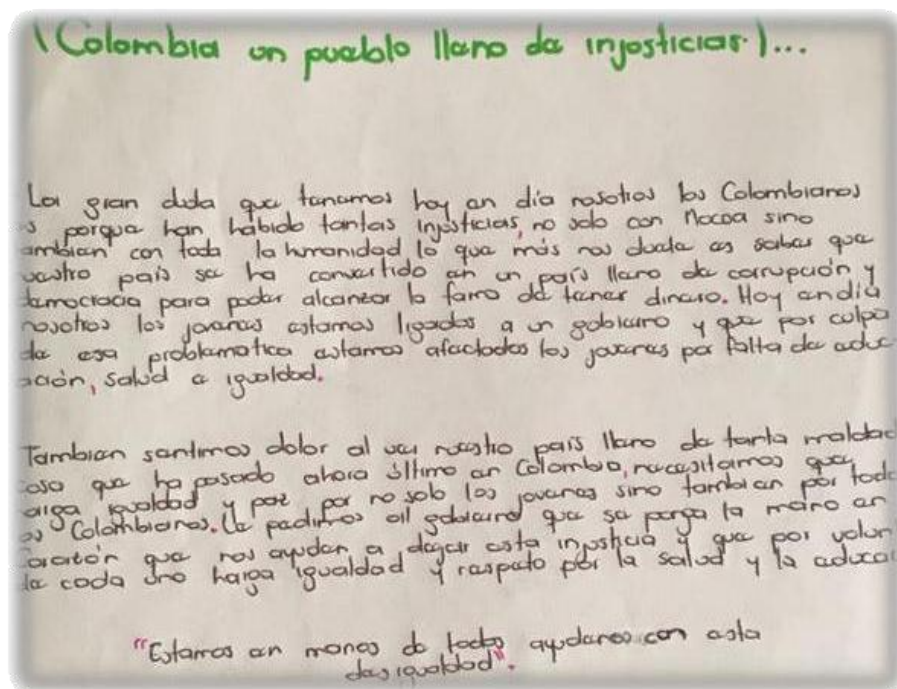 (Colombia un pueblo lleno de injusticias.)...
La gran duda que tenemos hoy en día nosotros los Colombianos
s porque han habido tantas injusticias, no solo con Mocoa sino
ambien con toda la humanidad lo que más nos duele es saber que
uestro país se ha convertido en un país lleno de corrupción y
democracia para poder alcanzar la fama de tener dinero. Hoy en día
nosotros los jovenes estamos ligados a un gobierno y que por culpa
de esa problematica estamos afectados los jovenes por falta de educ
ación, salud e igualdad.
Tambien sentimos dolor al ver nuestro país lleno de tanta maldad
cosa que ha pasado ahora último en Colombia, necesitamos que
aiga igualdad y paz por no solo los jovenes sino tambien por todo
os Colombianos. Le pedimos al gobierno que se ponga la mano en
corazón que nos ayuden a dejar esta injusticia y que por volun
de cada uno haiga igualdad y respeto por la salud y la educa
"Estamos en manos de todos ayudarnos con esta
desigualdad".